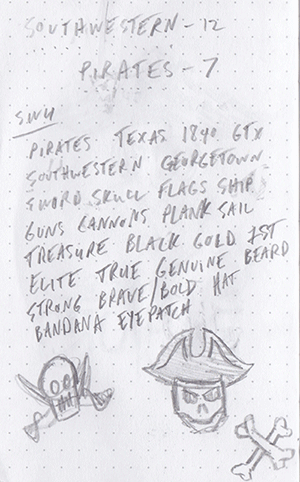 SOUTHWESTERN - 12
PIRATES - 7
SWU
PIRATES TEXAS 1840 GTX
SOUTHWESTERN GEORGETOWN
SWORD SKULL FLAGS SHIP
GUNS CANNONS PLANK SAIL
TREASURE BLACK GOLD 1ST
ELITE TRUE GENUINE BEARD
STRONG BRAVE/BOLD HAT
BANDANA EYEPATCH